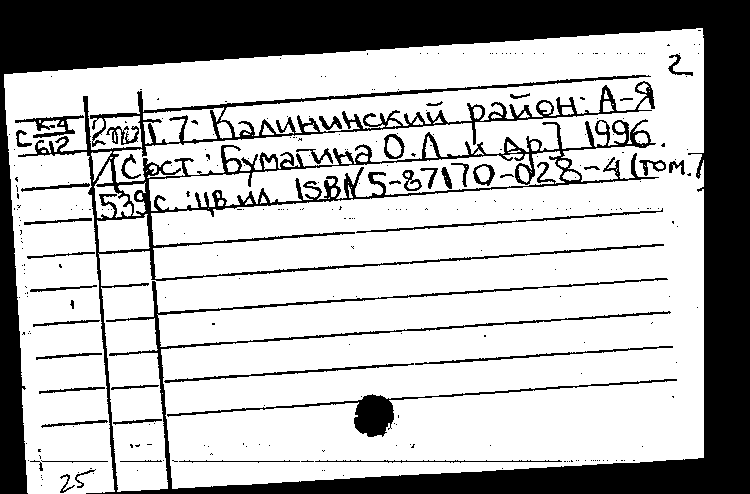 2
С К-4 Т.7: Калининский район: А-Я
612 / [Сост.: Бумагина О.Л. и др.] 1996.
539 с.: цв. ил. ISBN 5-87170-028-4 (том.7
25